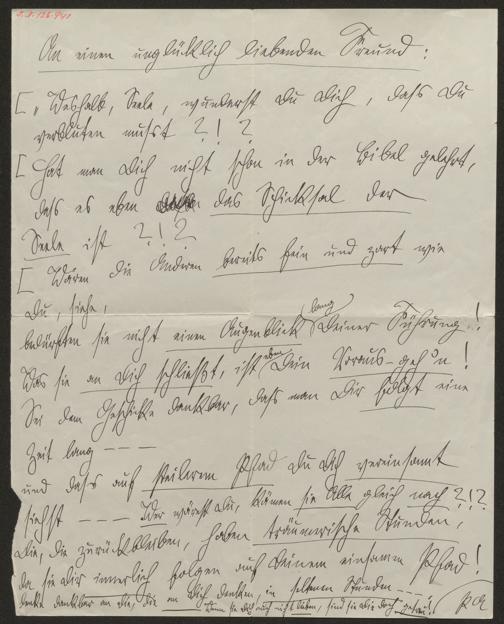 An einen unglücklich liebenden Freund:
[„Weshalb, Seele, wunderst Du Dich, dass Du
verbluten musst ?!?
[Hat man Dich nicht schon in der Bibel gelehrt,
dass es eben das Schicksal der
Seele ist ?!?
[Wären die Anderen bereits fein und zart wie
Du, siehe,
bedürften sie nicht einen Augenblick lang Deiner Führung!
Was sie an Dich schliesst, ist eben Dein Voraus-geh'n!
Sei dem Geschicke dankbar, dass man Dir folgt eine
Zeit lang – – –
und dass auf steilerem Pfad Du Dich vereinsamt
siehst – – – Wer wärest Du, kämen sie Alle gleich nach ?!?
Die, die zurückbleiben, haben träumerische Stunden,
da sie Dir innerlich folgen auf Deinem einsamen Pfad!
Denke dankbar an die, die an Dich denken, in seltenen Stunden – – –
Wenn sie Dich auch nicht lieben, sind sie Dir doch
PA